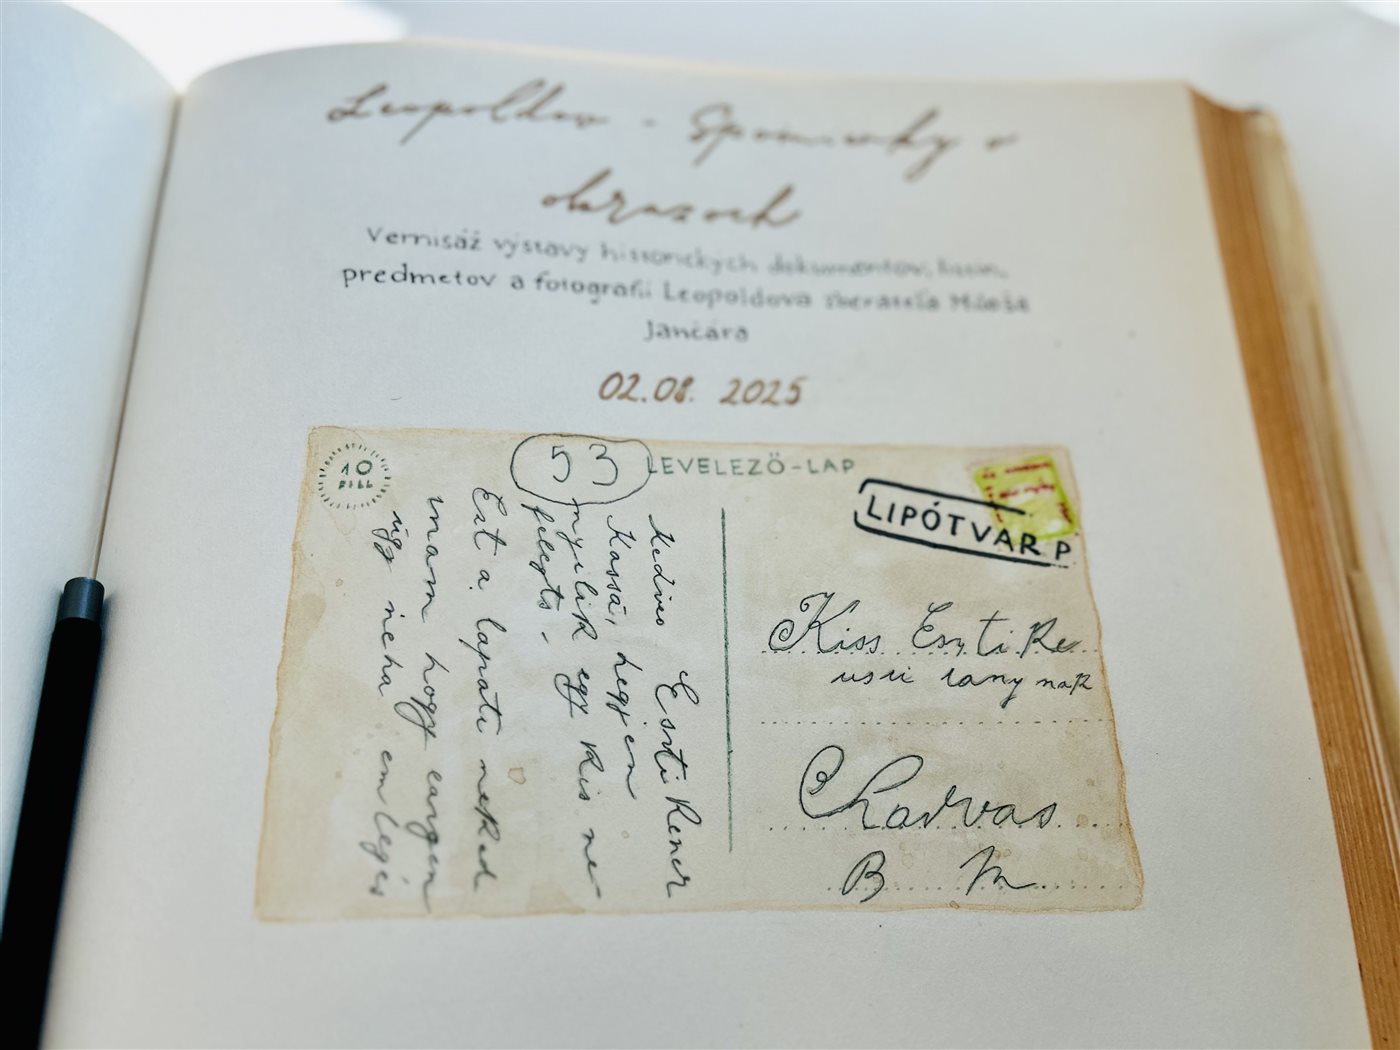 Leopoldov - Spomienky v
obrazoch
Vernisáž výstavy historických dokumentov, listín,
predmetov a fotografií Leopoldova zberateľa Miloša
Jančára
02.08. 2025
10
FILL
53
LEVELEZŐ-LAP
LIPÓTVAR P
Kedves Eszti Kener
Kassá, hegyen
nyilik egy kis ne
felegts -
Ezt a lapáti neked
inam hogy
úgy neha emlegés
Kiss Eszti Ke
usii lany nak
B M